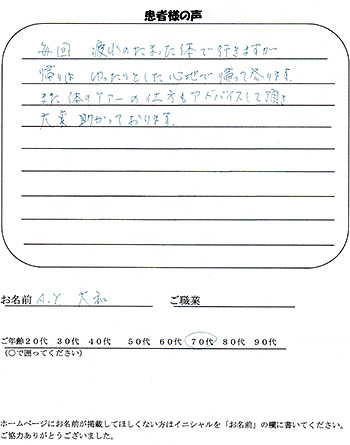 患者様の声
毎回 疲れのたまった体で行きますが
帰りは ゆったりとした心地で帰って参ります。
また体のケアーの仕方もアドバイスして頂き
大変 助かっております。
お名前 A.Y 大和 ご職業
ご年齢20代 30代 40代 50代 60代 70代 80代 90代
(〇で囲ってください)
ホームページにお名前が掲載してほしくない方はイニシャルを「お名前」の欄に書いてください。
ご協力ありがとうございました。